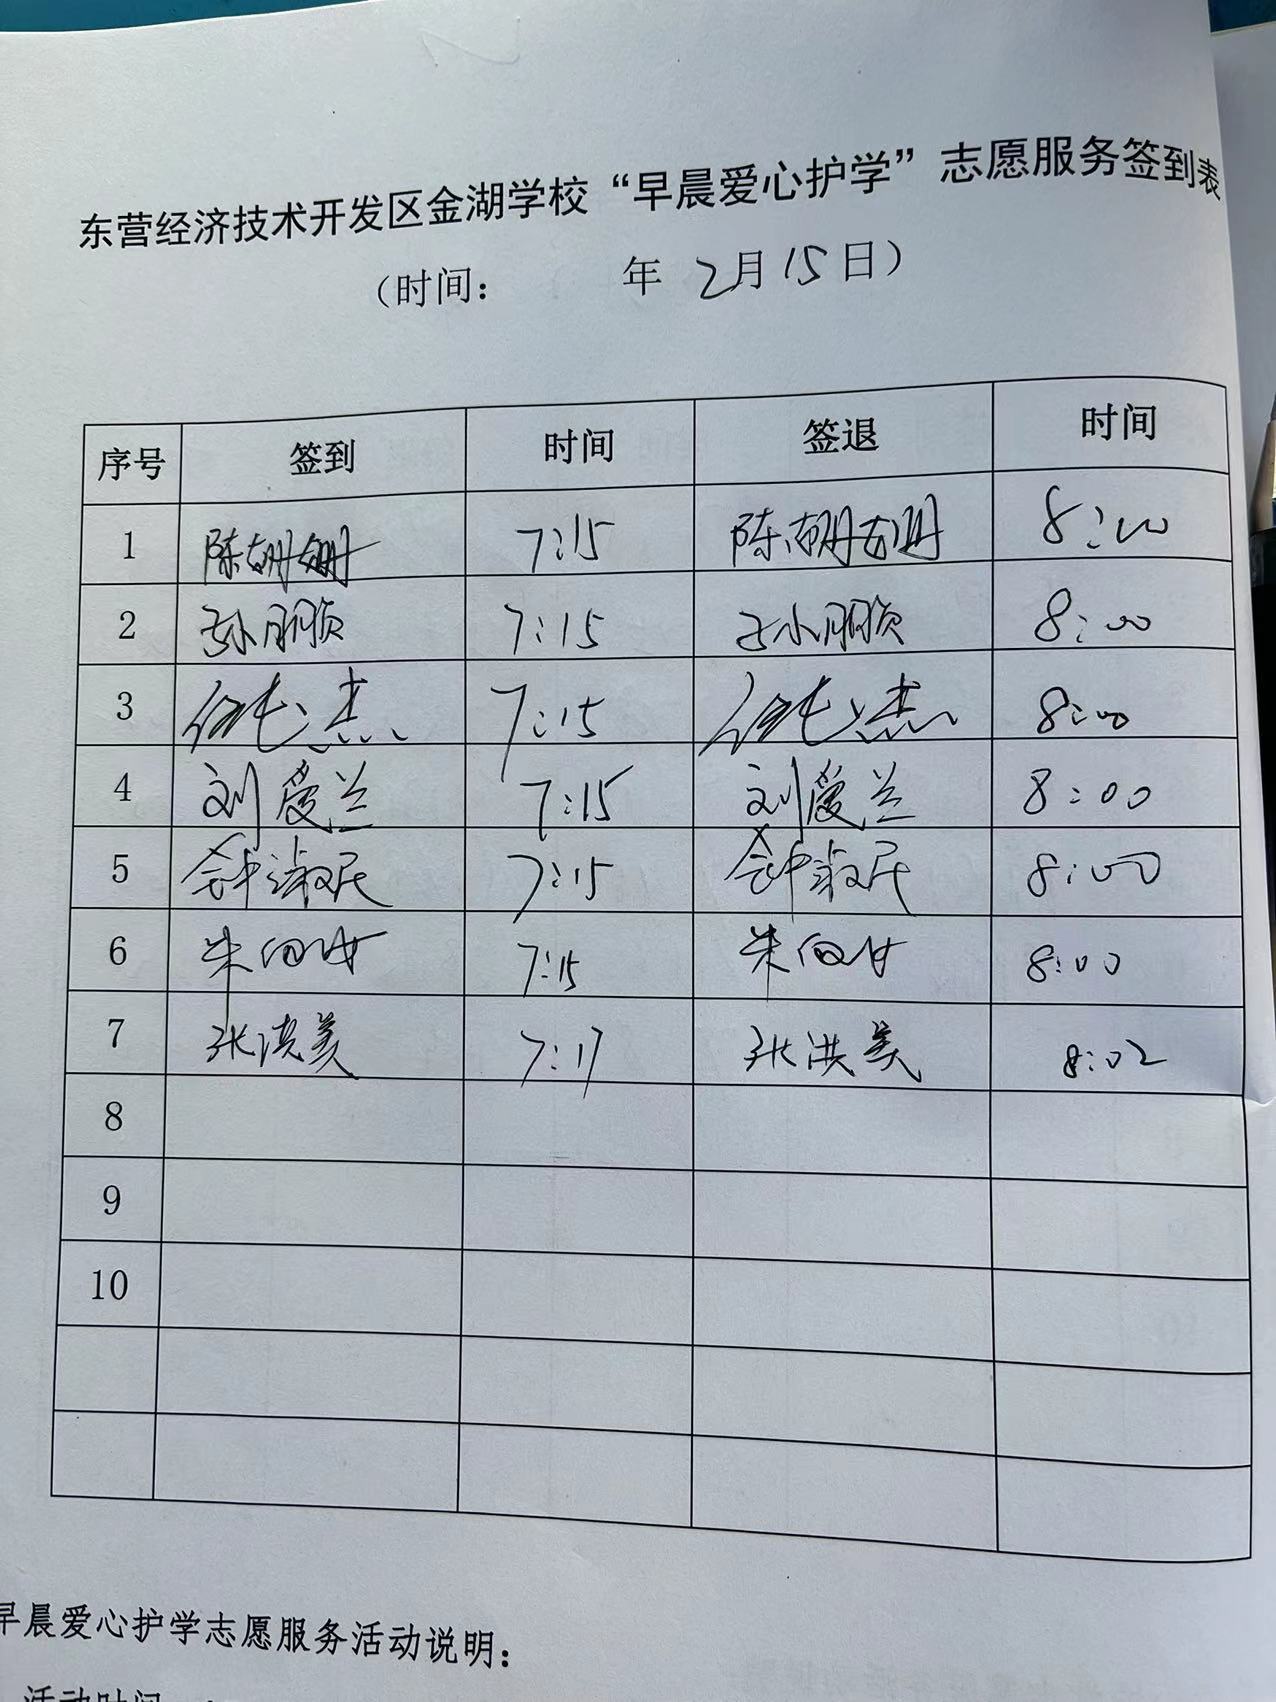 东营经济技术开发区金湖学校“早晨爱心护学”志愿服务签到表
（时间： 年 2月15日）
序号 签到 时间 签退 时间
1 陈姗姗 7:15 陈姗姗 8:00
2 孙朋贞 7:15 孙朋贞 8:00
3 7:15 8:00
4 刘爱兰 7:15 刘爱兰 8:00
5 钟淑民 7:15 钟淑民 8:00
6 朱 7:15 朱 8:00
7 张洪美 7:17 张洪美 8:02
8
9
10
早晨爱心护学志愿服务活动说明：
活动时间